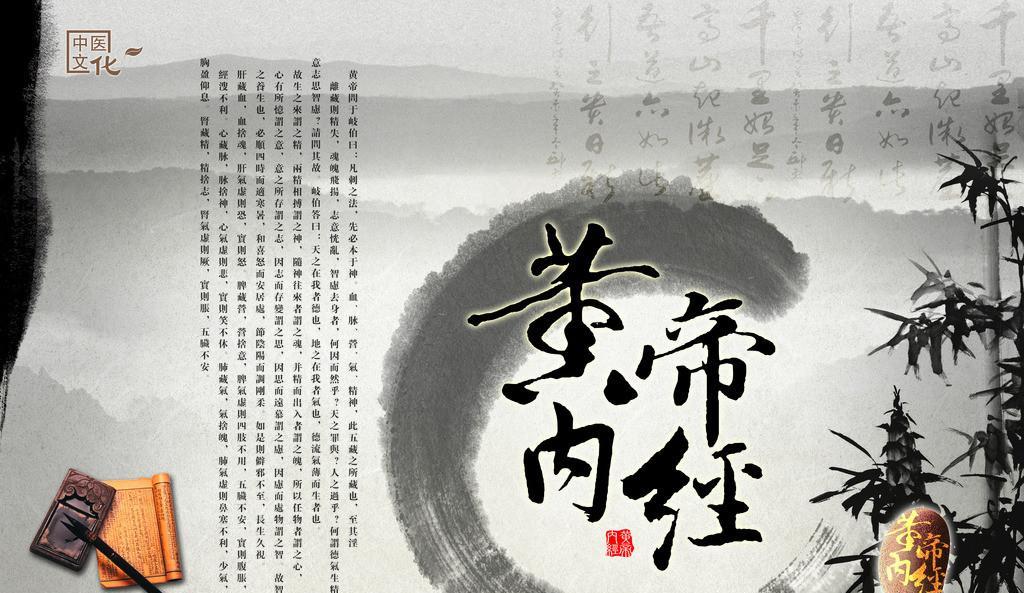 中医
文化
黄帝問于岐伯曰：凡刺之法，先必本于神。血、脉、營、氣、精神，此五藏之所藏也，至其淫
離藏則精失，魂魄飛揚，志意恍亂，智慮去身者，何因而然乎？天之罪與？人之過乎？何謂德氣生精
意志思智慮？請問其故。岐伯答曰：天之在我者德也，地之在我者氣也，德流氣薄而生者也。
故生之來謂之精，兩精相搏謂之神，隨神往來者謂之魂，并精而出入者謂之魄，所以任物者謂之心，
心有所憶謂之意，意之所存謂之志，因志而存變謂之思，因思而遠慕謂之慮，因慮而處物謂之智。故智
之養生也，必順四時而適寒暑，和喜怒而安居處，節陰陽而調剛柔。如是則僻邪不至，長生久視。
肝藏血，血捨魂，肝氣虛則恐，實則怒。脾藏營，營捨意，脾氣虛則四肢不用，五臟不安，實則腹脹，
經溲不利。心藏脉，脉捨神，心氣虛則悲，實則笑不休。肺藏氣，氣捨魄，肺氣虛則鼻塞不利，少氣，
胸盈仰息。腎藏精，精捨志，腎氣虛則厥，實則脹，五臟不安。
千里始足
高山起微
吾道亦如此
行之貴日新
黄帝
内經
黄帝
内經
黄帝
内經